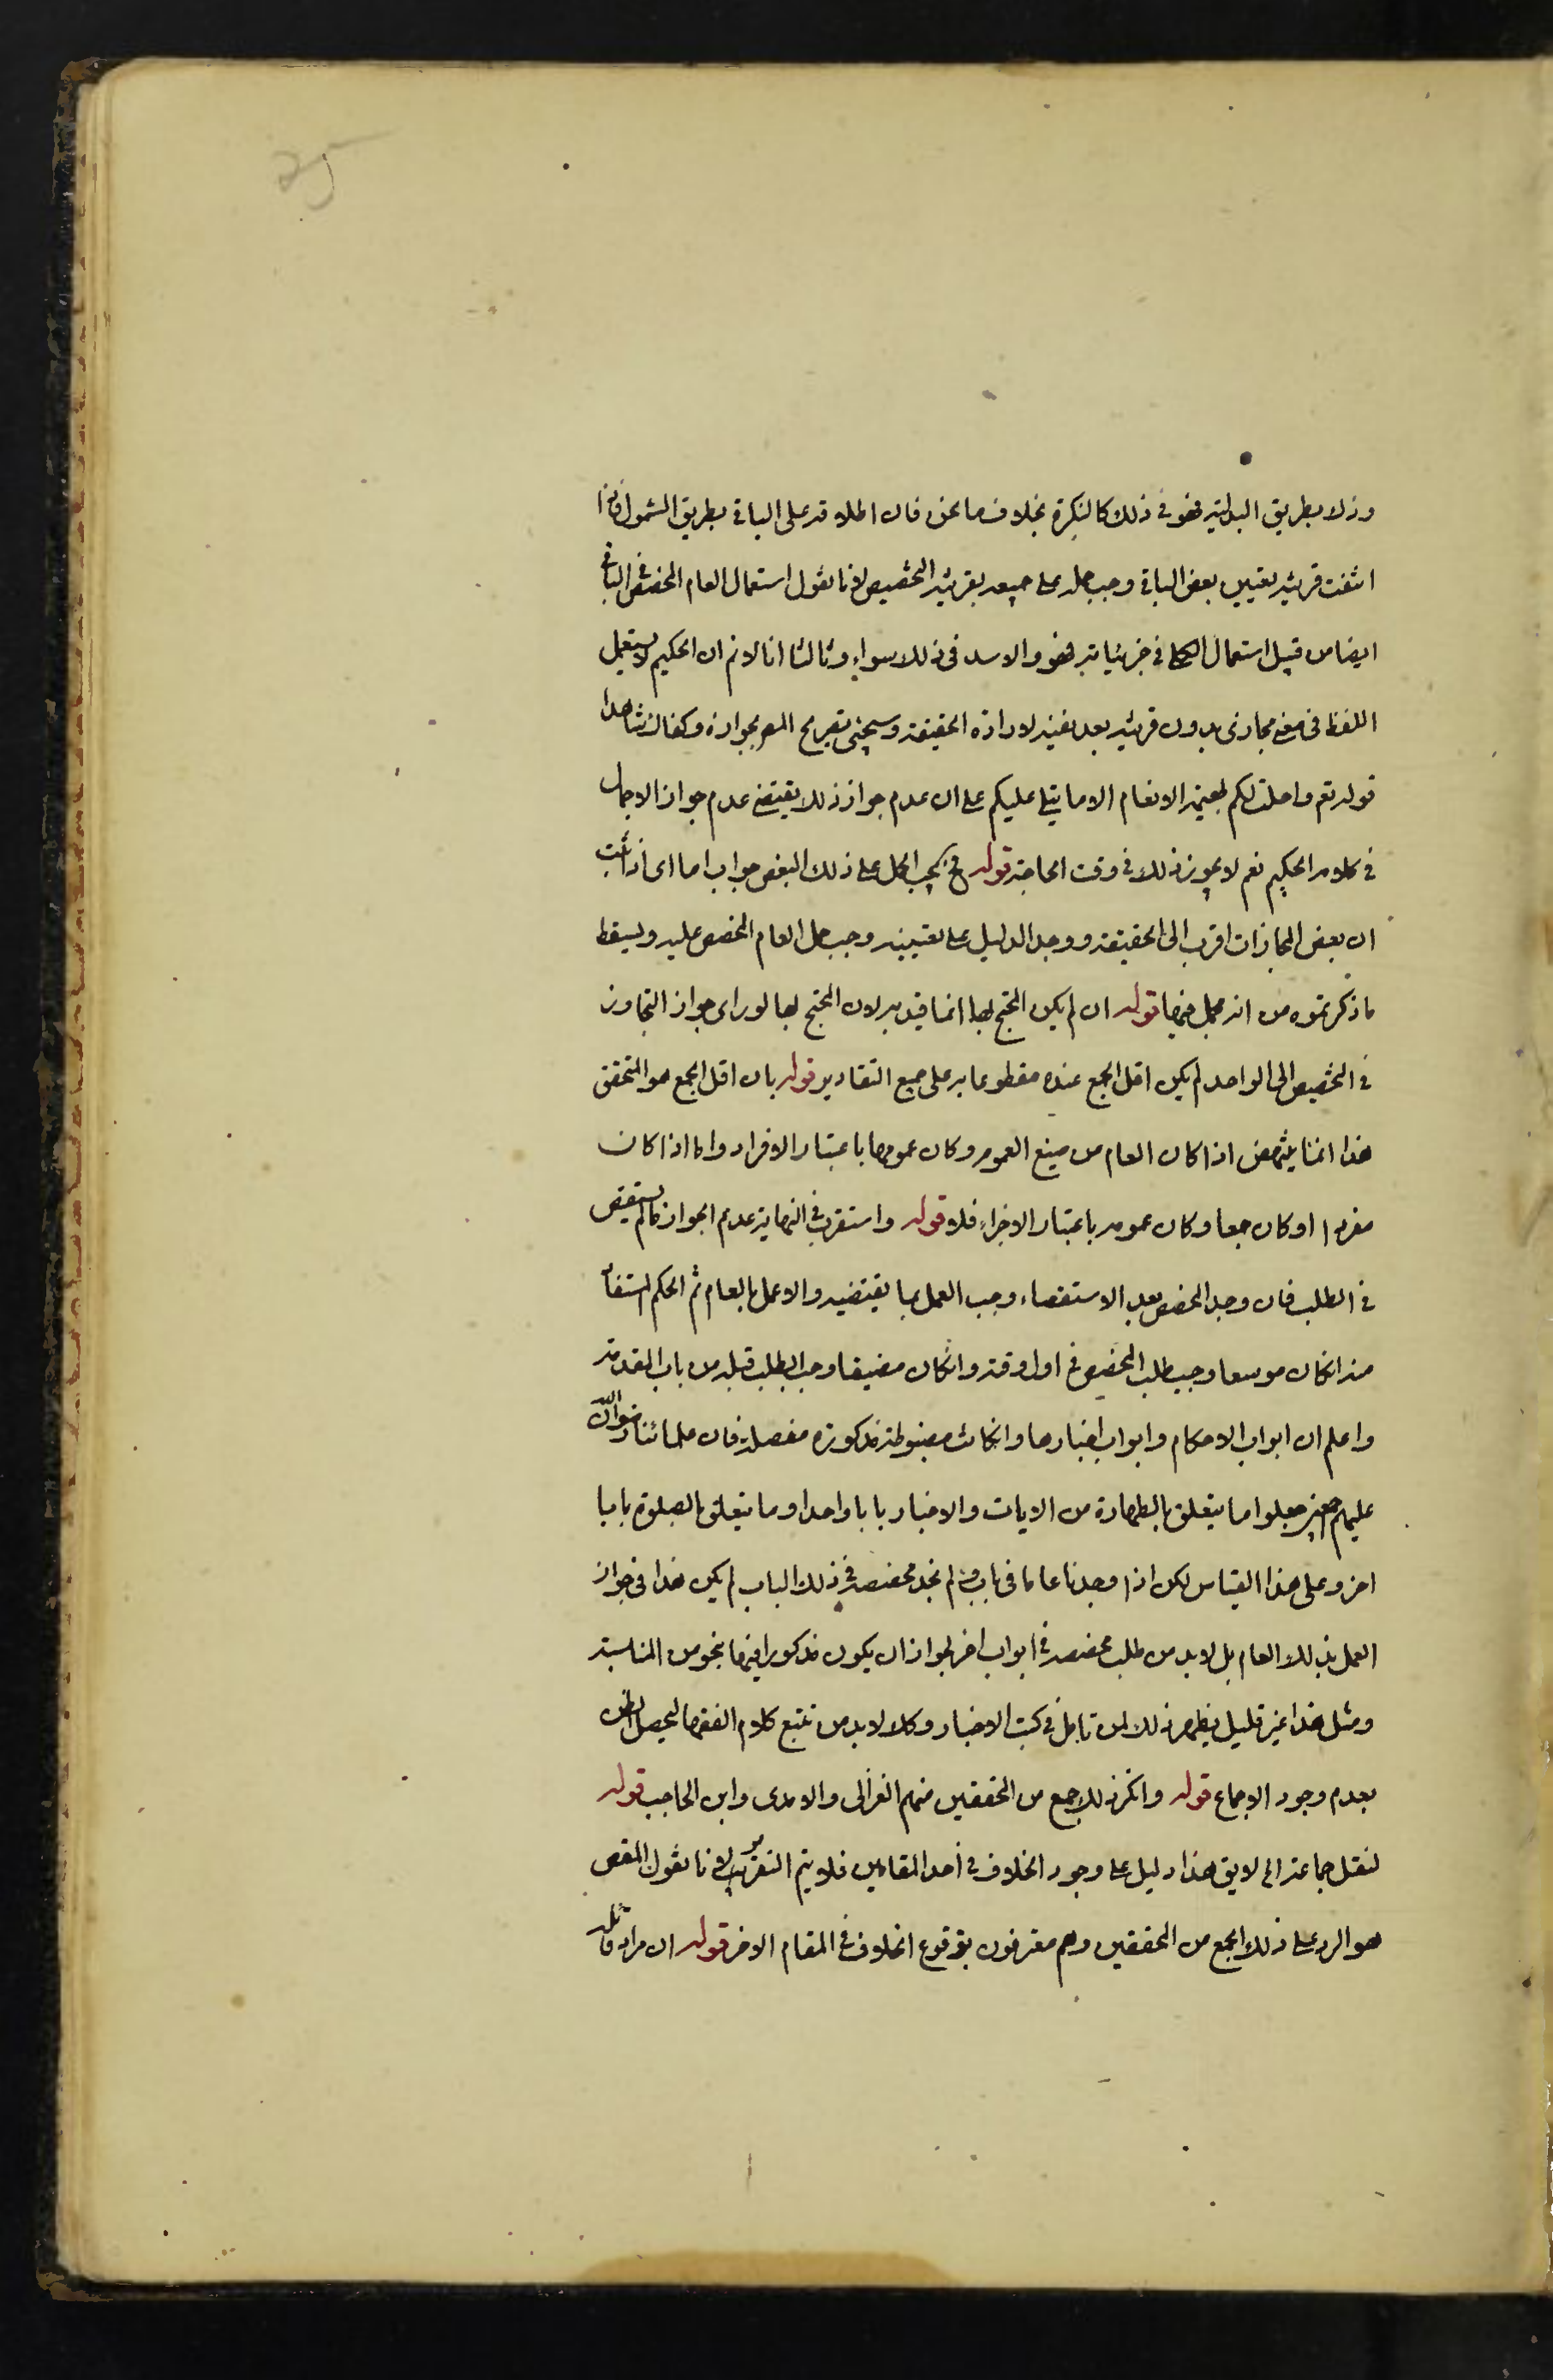 25
وذلك بطريق البدلية فهو في ذلك كالنكرة بخلاف ما نحن فان اطلاقه على الباقي بطريق الشمول فاذا
انتفت قرينة تعيين بعض الباقي وجب حمله على جميعه بقرينة التخصيص لانا نقول استعمال العام المخصص في الباقي
ايضا من قبيل استعمال الكلي في جزئياته فهو والاسد في ذلك سواء وثالثا انا لا نم ان الحكيم لا يستعمل
اللفظ في معنى مجازي بدون قرينة بعد نفيه لارادة الحقيقة وسيجئ تصريح المص بجوازه وكفاك شاهدا
قوله تع واحلت لكم بهيمة الانعام الا ما يتلى عليكم على ان عدم جواز ذلك يقتضي عدم جواز الاجمال
في كلام الحكيم نعم لا يجوز ذلك في وقت الحاجة قوله فح يجب الحمل على ذلك البعض جواب اما اى اذا ثبت
ان بعض المجازات اقرب الى الحقيقة ووجد الدليل على تعيينه وجب حمل العام المخصص عليه ويسقط
ما ذكرتموه من انه مجمل فيها قوله ان لم يكن المحتج بها انما قيد به لان المحتج بها لو راى جواز التجاوز
في التخصيص الى الواحد لم يكن اقل الجمع عنده مقطوعا به على جميع التقادير قوله بان اقل الجمع هو المتحقق
هذا انما ينتهض اذا كان العام من صيغ العموم وكان عمومها باعتبار الافراد واما اذا كان
مفردا او كان جمعا وكان عمومه باعتبار الاجزاء فلا قوله واستقرب في النهاية عدم الجواز ما لم يستقص
في الطلب فان وجد المخصص بعد الاستقصاء وجب العمل بما يقتضيه والا عمل بالعام ثم الحكم المستفاد
منه انكان موسعا وجب طلب المخصص في اول وقته وانكان مضيقا وجب الطلب قبله من باب المقدمة
واعلم ان ابواب الاحكام وابواب اخبارها وانكانت مضبوطة مذكورة مفصلة فان علمائنا رضوان الله
عليهم جعلوا ما يتعلق بالطهارة من الايات والاخبار بابا واحدا وما يتعلق بالصلوة بابا
اخر وعلى هذا القياس لكن اذا وجدنا عاما في باب ولم نجد مخصصه في ذلك الباب لم يكن هذا في جواز
العمل بذلك العام بل لا بد من طلب مخصصه في ابواب اخر لجواز ان يكون مذكورا فيها بنحو من المناسبة
ومثل هذا غير قليل يظهر ذلك لمن تامل في كتب الاخبار وكذا لا بد من تتبع كلام الفقهاء ليحصل الظن
بعدم وجود الاجماع قوله وانكر ذلك جمع من المحققين منهم الغزالي والامدى وابن الحاجب قوله
لنقل جماعة الخ لا يق هذا دليل على وجود الخلاف في احد المقامين فلا يتم التقريب لانا نقول المقص
هو الرد على ذلك الجمع من المحققين وهم معترفون بوقوع الخلاف في المقام الاخر قوله ان مراد قائله